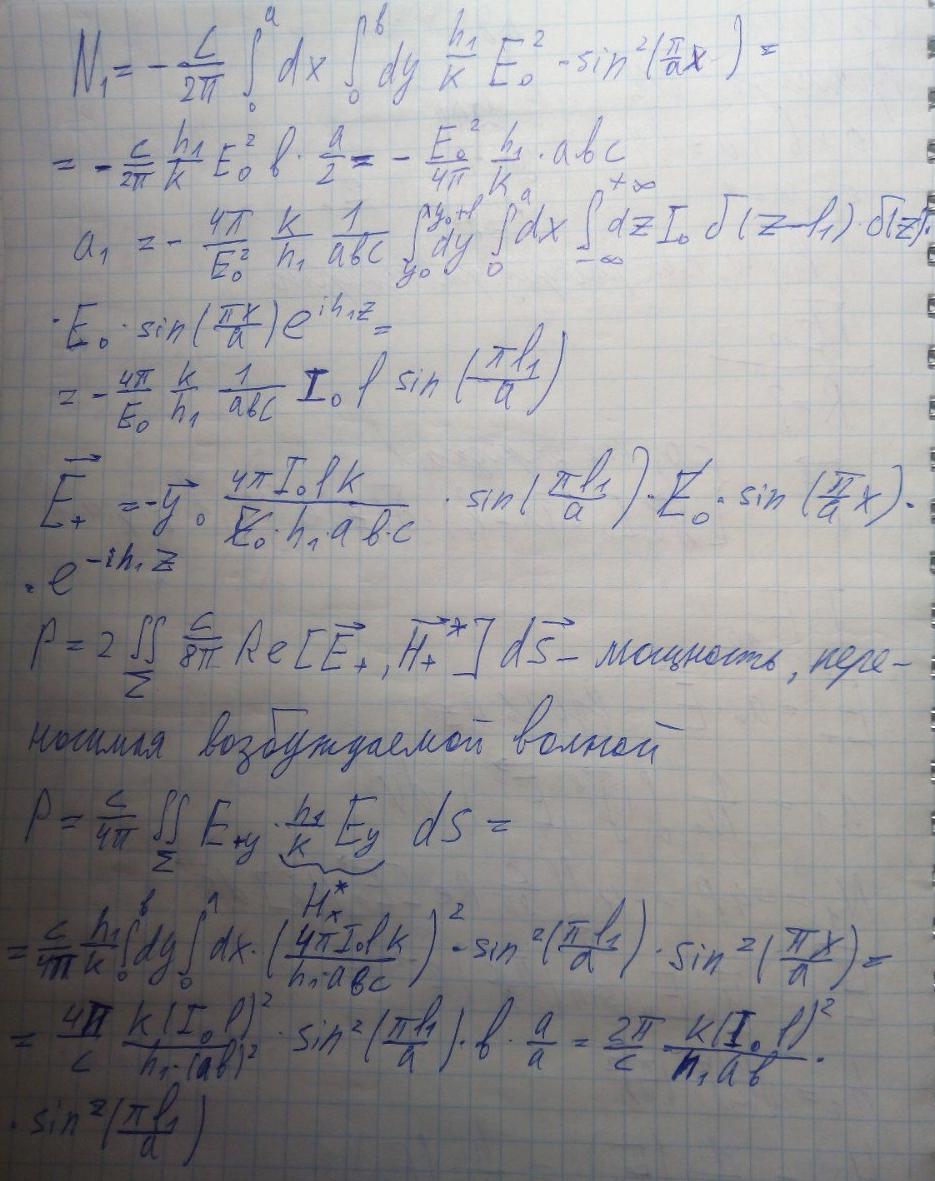 N₁ = - c/2π ∫₀ᵃ dx ∫₀ᵇ dy h₁/k E₀² · sin²(π/a x) =
= - c/2π h₁/k E₀² b · a/2 = - E₀²/4π h₁/k · abc
a₁ = - 4π/E₀² k/h₁ 1/abc ∫_{y₀}^{y₀+l} dy ∫₀ᵃ dx ∫_{-∞}^{+∞} dz I₀ δ(z-l₁) · δ(z) ·
· E₀ · sin(πx/a) e^{ih₁z} =
= - 4π/E₀ k/h₁ 1/abc I₀ l sin(πl₁/a)
E⃗₊ = -y⃗₀ 4πI₀lk/E₀·h₁·ab·c · sin(πl₁/a) · E₀ · sin(π/a x) ·
· e^{-ih₁z}
P = 2 ∬_Σ c/8π Re[E⃗₊, H⃗₊*] ds⃗ - мощность, пере-
носимая возбуждаемой волной
P = c/4π ∬_Σ E₊y · h₁/k Ey ds =
Hₓ*
= c/4π h₁/k ∫₀ᵇ dy ∫₀ᵃ dx · (4πI₀lk/h₁abc)² · sin²(πl₁/a) · sin²(πx/a) =
= 4π/c k(I₀l)²/h₁·(ab)² · sin²(πl₁/a) · b · a/a = 2π/c k(I₀l)²/h₁ab ·
· sin²(πl₁/a)